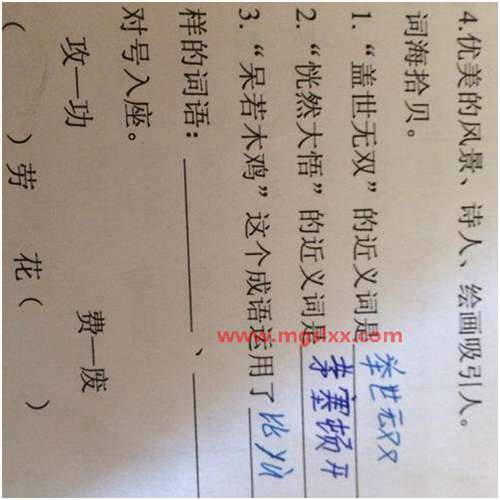 4.优美的风景、诗人、绘画吸引人。
词海拾贝。
1.“盖世无双”的近义词是 举世无双
2.“恍然大悟”的近义词是 茅塞顿开
3.“呆若木鸡”这个成语运用了 比
样的词语：________、________
对号入座。
攻—功 费—废
( )劳 花( )
www.mgdlxx.com